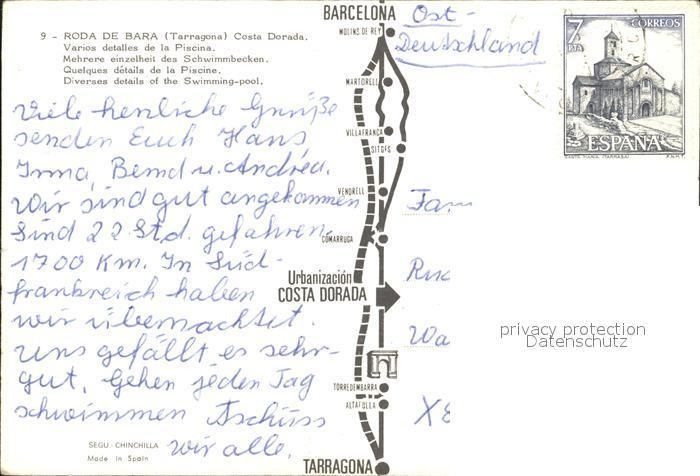 9 - RODA DE BARA (Tarragona) Costa Dorada.
Varios detalles de la Piscina.
Mehrere einzelheit des Schwimmbecken.
Quelques détails de la Piscine.
Diverses details of the Swimming-pool.
Viele herzliche Grüße
senden Euch Hans
Irma, Bernd u. Andrea.
Wir sind gut angekommen
Sind 22 Std. gefahren.
1700 Km. In Süd-
frankreich haben
wir übernachtet.
Uns gefällt es sehr
gut. Gehen jeden Tag
schwimmen Tschüss
wir alle.
SEGU - CHINCHILLA
Made in Spain
BARCELONA
MOLINS DE REY
MARTORELL
VILLAFRANCA
SITGES
VENDRELL
COMARRUGA
Urbanización
COSTA DORADA
TORREDEMBARRA
ALTAFULLA
TARRAGONA
Ost-
Deutschland
7 PTA CORREOS
ESPAÑA
SANTA MARIA (TARRASA) F.N.M.T.
Fam
Wa
privacy protection
Datenschutz